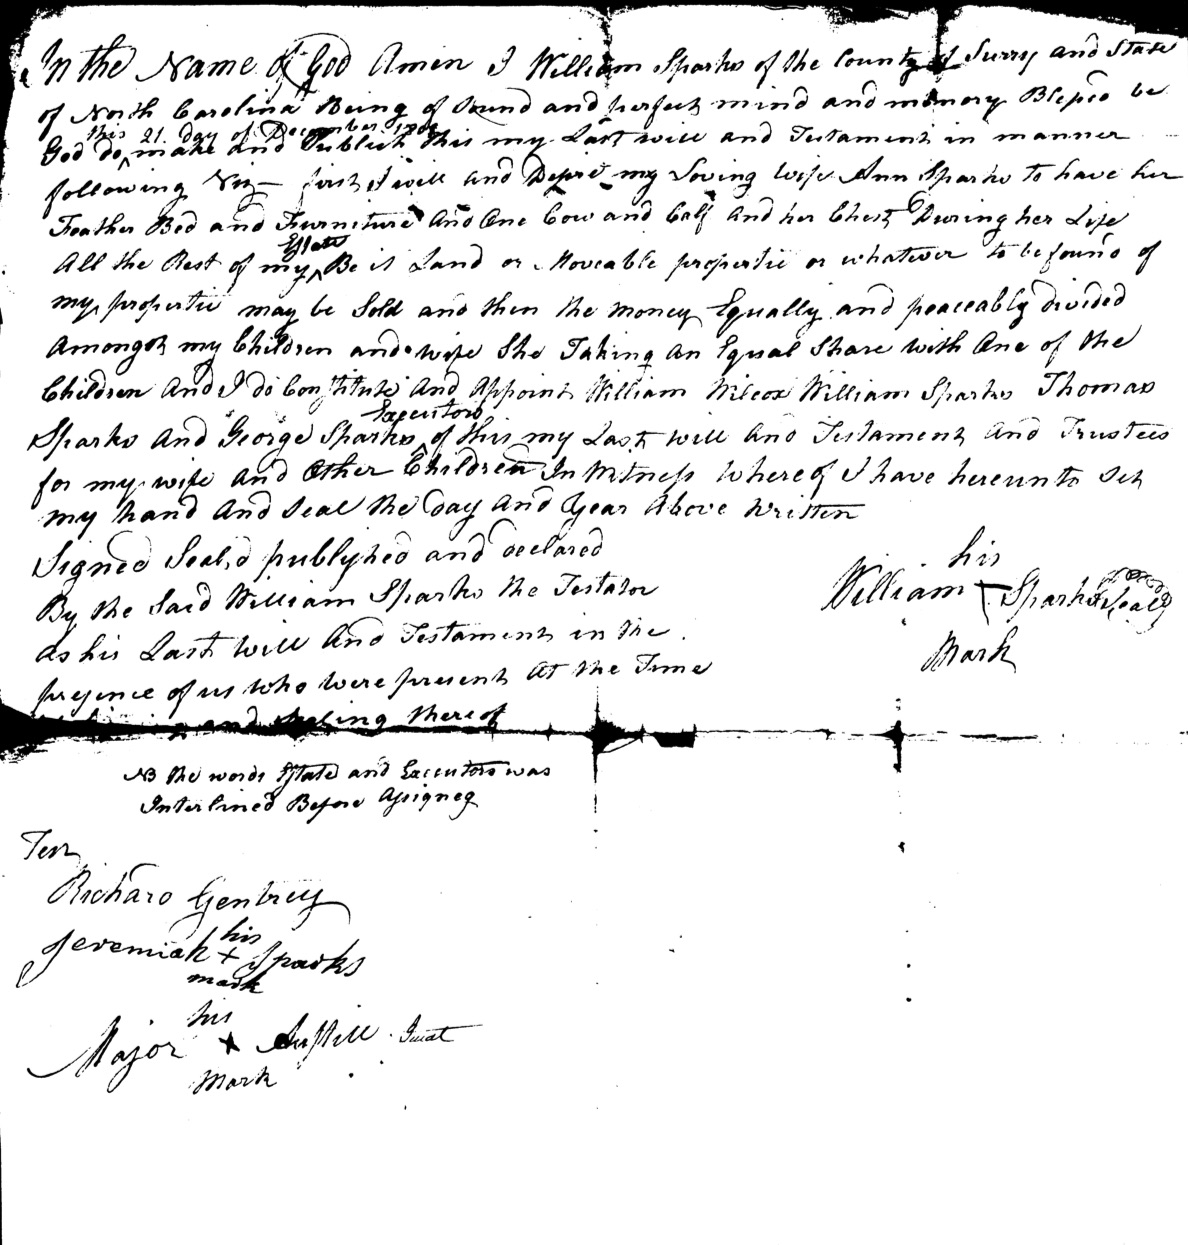 In the Name of God Amen I William Sparks of the County of Surry and State
of North Carolina Being of Sound and perfect mind and memory Blessed be
this 21 day of December
God do make and Publish this my Last will and Testament in manner
following Viz first I will and Desire my Loving wife Ann Sparks to have her
Feather Bed and Furniture and One Cow and Calf and her Chest During her Life
Estate
All the Rest of my Be it Land or Moveable propertie or whatever to be found of
my propertie may be Sold and then the money Equally and peaceably divided
Amongst my Children and wife She Taking an Equal Share with One of the
Children And I do Constitute And Appoint William Wilcox William Sparks Thomas
Executors
Sparks And George Sparks of this my Last will And Testament and Trustees
for my wife and Other Children In Witness Whereof I have hereunto Set
my hand And Seal the day And Year Above Written
Signed Seal,d publyshed and declared
By the Said William Sparks the Testator
as his Last will And Testament in the
presence of us who were present at the Time
and Sealing thereof
his
William Sparks Seal
Mark
NB the words Estate and Executors was
Interlined Before Assigneg
Test
Richard Gentrey
his
Jeremiah + Sparks
mark
his
Major + Austill Jurat
Mark